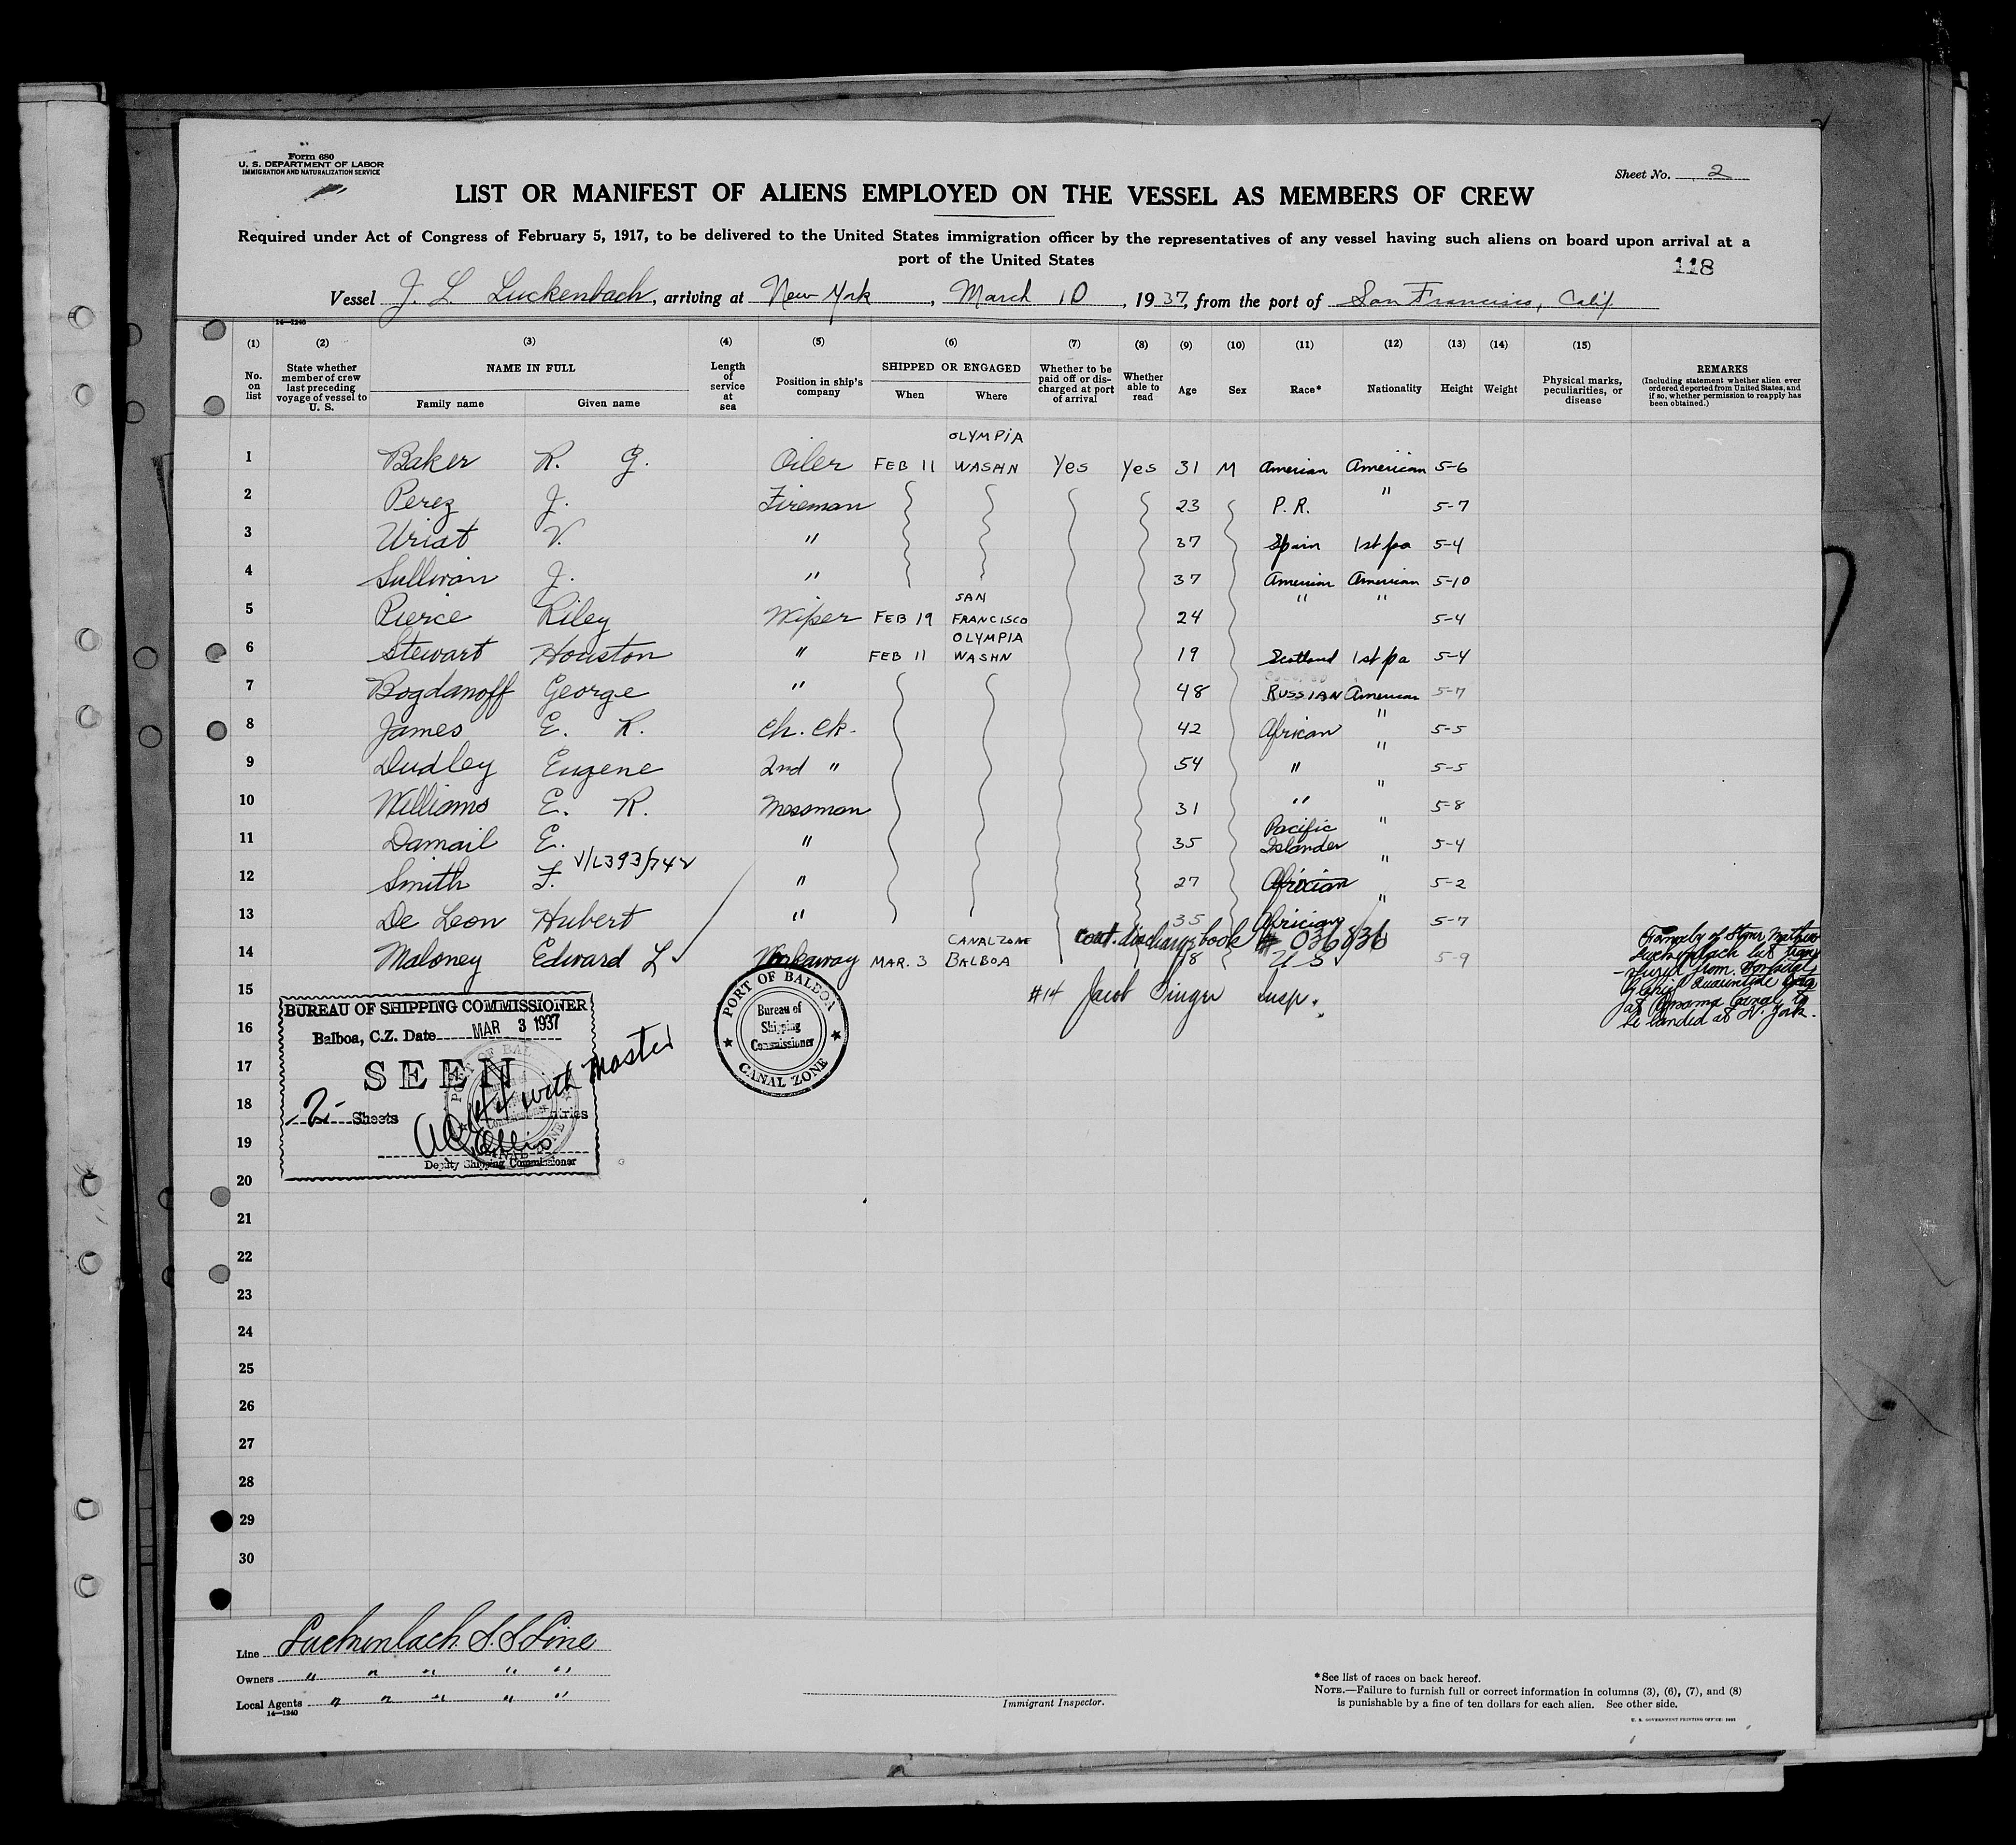 Form 680
U. S. DEPARTMENT OF LABOR
IMMIGRATION AND NATURALIZATION SERVICE
Sheet No. 2
LIST OR MANIFEST OF ALIENS EMPLOYED ON THE VESSEL AS MEMBERS OF CREW
Required under Act of Congress of February 5, 1917, to be delivered to the United States immigration officer by the representatives of any vessel having such aliens on board upon arrival at a
port of the United States
118
Vessel J. L. Luckenbach, arriving at New York, March 10, 1937, from the port of San Francisco, Calif.
14—1240
(1) (2) (3) (4) (5) (6) (7) (8) (9) (10) (11) (12) (13) (14) (15)
No. on list
State whether member of crew last preceding voyage of vessel to U. S.
NAME IN FULL
Family name Given name
Length of service at sea
Position in ship's company
SHIPPED OR ENGAGED
When Where
Whether to be paid off or discharged at port of arrival
Whether able to read
Age Sex Race* Nationality Height Weight
Physical marks, peculiarities, or disease
REMARKS
(Including statement whether alien ever ordered deported from United States, and if so, whether permission to reapply has been obtained.)
1 Baker R. G. Oiler FEB 11 OLYMPIA WASHN Yes Yes 31 M American American 5-6
2 Perez J. Fireman 23 P. R. " 5-7
3 Uriat V. " 37 Spain 1st pa 5-4
4 Sullivan J. " 37 American American 5-10
5 Pierce Riley Wiper FEB 19 SAN FRANCISCO 24 " " 5-4
6 Stewart Houston " FEB 11 OLYMPIA WASHN 19 Scotland 1st pa 5-4
7 Bogdanoff George " 48 RUSSIAN American 5-7
8 James E. R. Ch. Ck. 42 African " 5-5
9 Dudley Eugene 2nd " 54 " " 5-5
10 Williams E. R. Messman 31 " " 5-8
11 Damail E. " 35 Pacific Islander " 5-4
V/L393/742
12 Smith F. " 27 African " 5-2
13 De Leon Hubert " 35 African " 5-7
cont. discharge book # 036836
14 Maloney Edward L Workaway MAR. 3 CANAL ZONE BALBOA 18 U S 5-9
Formerly of Stmr Mathew Luckenbach but trans-ferred from Hospital by Chief Quarantine at Panama Canal to be landed at N. York.
15 #14 Jacob Singer Insp.
16
17
18
19
20
21
22
23
24
25
26
27
28
29
30
BUREAU OF SHIPPING COMMISSIONER
Balboa, C.Z. Date MAR 3 1937
SEEN
2 Sheets
44 with Master
Deputy Shipping Commissioner
PORT OF BALBOA
Bureau of
Shipping
Commissioner
CANAL ZONE
Line Luckenbach S. S Line
Owners " " " " "
Local Agents " " " " "
14—1240
Immigrant Inspector.
*See list of races on back hereof.
NOTE.—Failure to furnish full or correct information in columns (3), (6), (7), and (8)
is punishable by a fine of ten dollars for each alien. See other side.